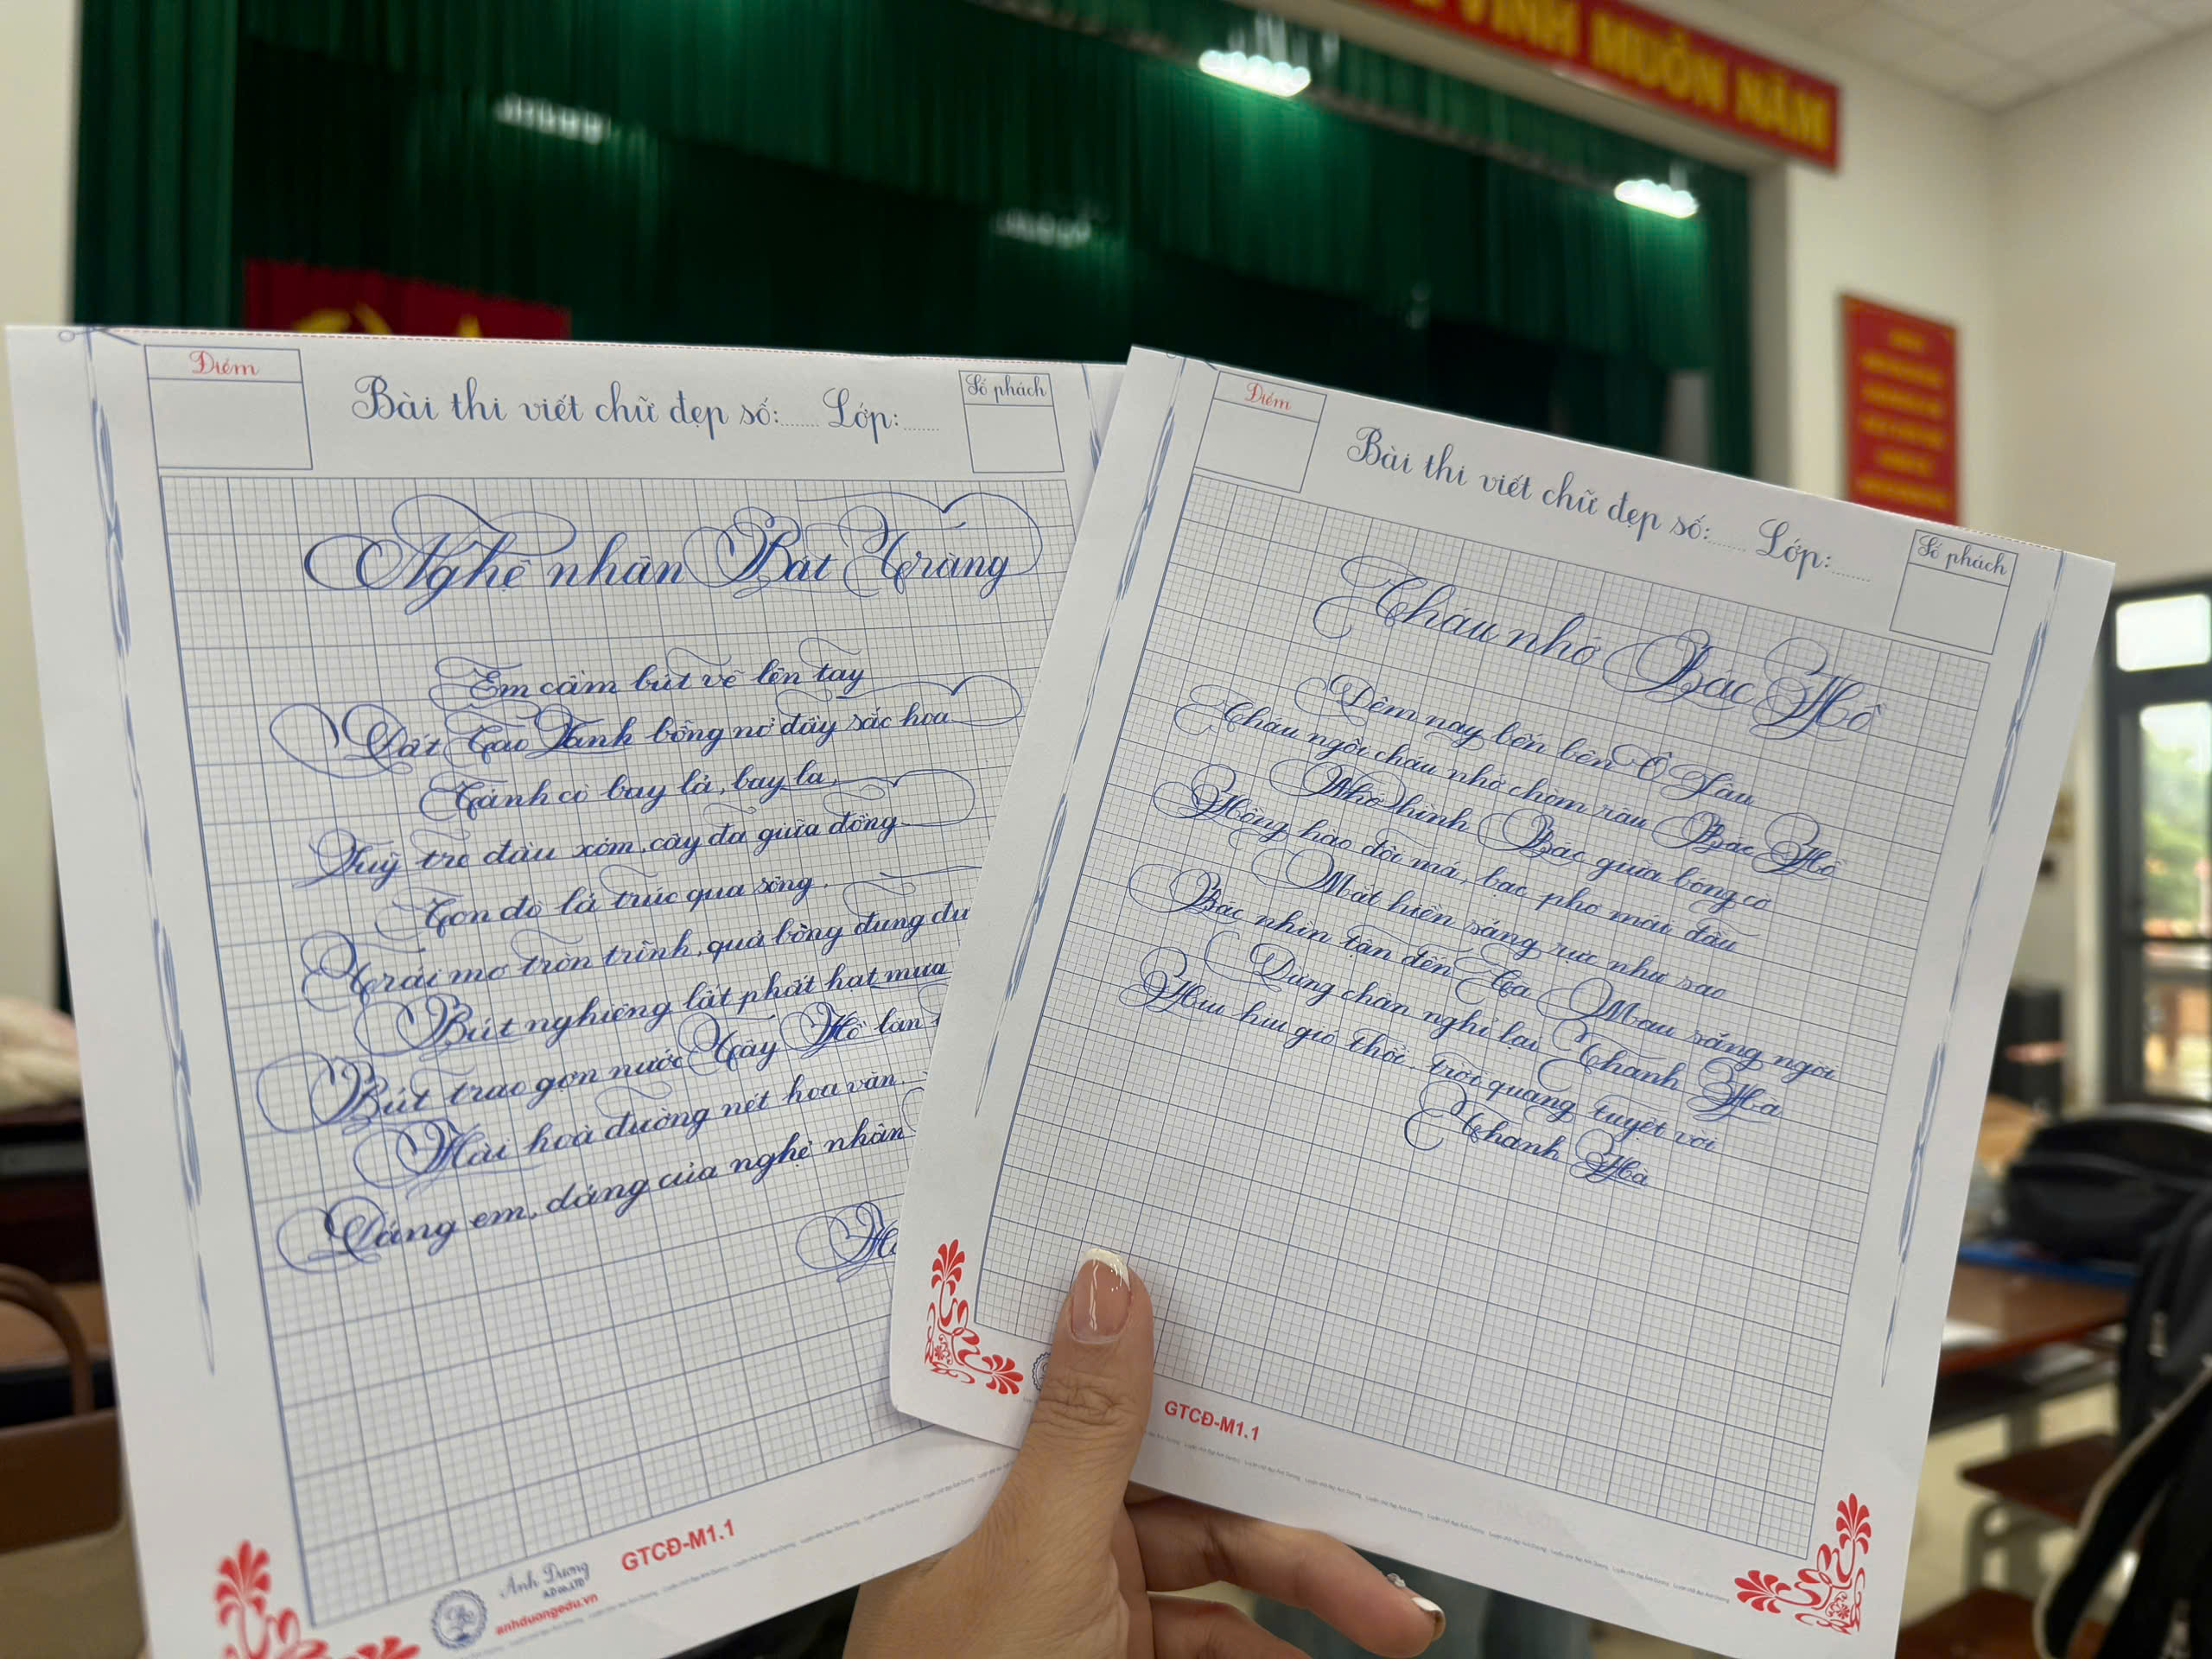 VINH MUÔN NĂM
Điểm
Bài thi viết chữ đẹp số:........ Lớp:.......
Số phách
Nghệ nhân Bát Tràng
Em cầm bút vẽ lên tay
Đất Cao Lanh bỗng nở đầy sắc hoa
Cánh cò bay lả, bay la
Luỹ tre đầu xóm, cây đa giữa đồng
Con đò lá trúc qua sông
Trái mơ tròn trĩnh, quả bòng đung đư
Bút nghiêng lất phất hạt mưa
Bút trao gợn nước Tây Hồ lăn t
Hài hoà đường nét hoa văn
Dáng em, dáng của nghệ nhân
Hồ
GTCĐ-M1.1
Ánh Dương
A.D co.,LTD
anhduongedu.vn
Điểm
Bài thi viết chữ đẹp số:........ Lớp:.......
Số phách
Cháu nhớ Bác Hồ
Đêm nay bên bến Ô Lâu
Cháu ngồi cháu nhớ chòm râu Bác Hồ
Nhớ hình Bác giữa bóng cờ
Hồng hào đôi má, bạc phơ mái đầu
Mắt hiền sáng rực như sao
Bác nhìn tận đến Cà Mau sáng ngời
Dừng chân nghỉ lại Thanh Hà
Hiu hiu gió thổi, trời quang tuyệt vời
Thanh Hà
GTCĐ-M1.1